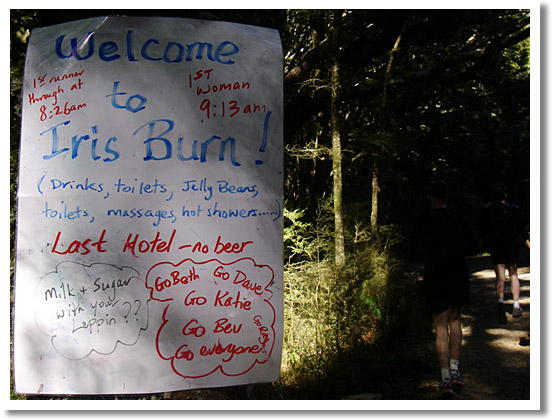 Welcome
1st runner
through at
8:26am
1ST
WOMAN
9:13am
to
Iris Burn!
(Drinks, toilets, Jelly Beans,
toilets, massages, hot showers......)
Last Hotel - no beer
Milk + Sugar
with your
Leppin??
Go Beth Go Dave
Go Katie
Go Bev
Go everyone